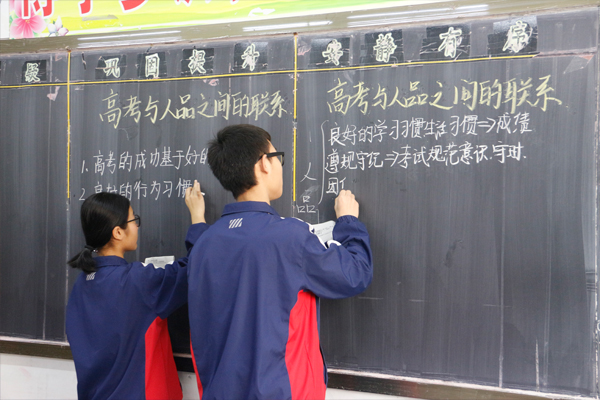 巩固提升 安静有序
高考与人品之间的联系
1. 高考的成功基于好的
2. 良好的行为习惯
高考与人品之间的联系
人品
良好的学习习惯生活习惯⇒成绩
遵规守纪⇒考试规范意识.守时.
团